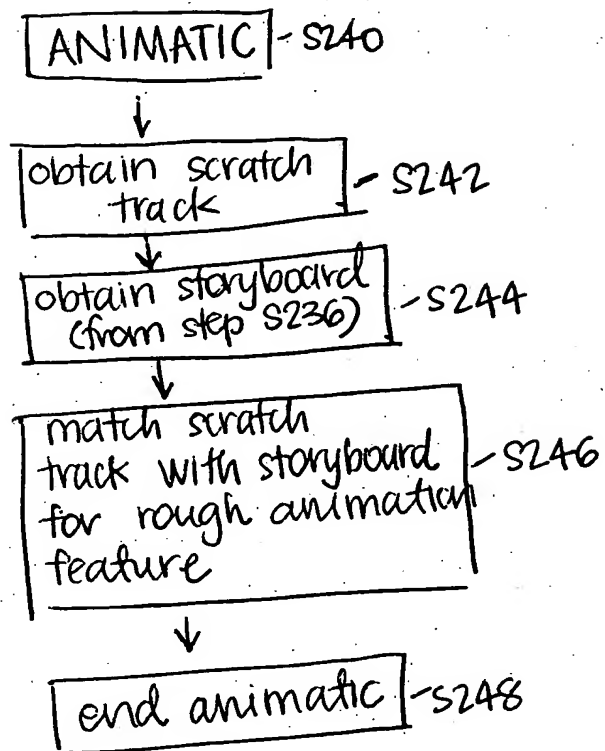 ANIMATIC - S240
obtain scratch - S242
track
obtain storyboard - S244
(from step S236)
match scratch
track with storyboard - S246
for rough animation
feature
end animatic - S248